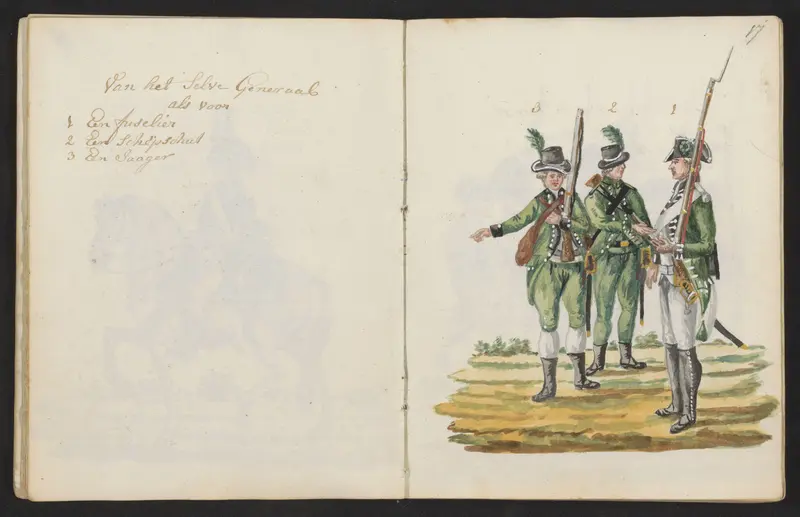 Van het Selve Generaal
als voor
1 Een fuselier
2 Een Scherpschut
3 En Jaager
17
3 2 1